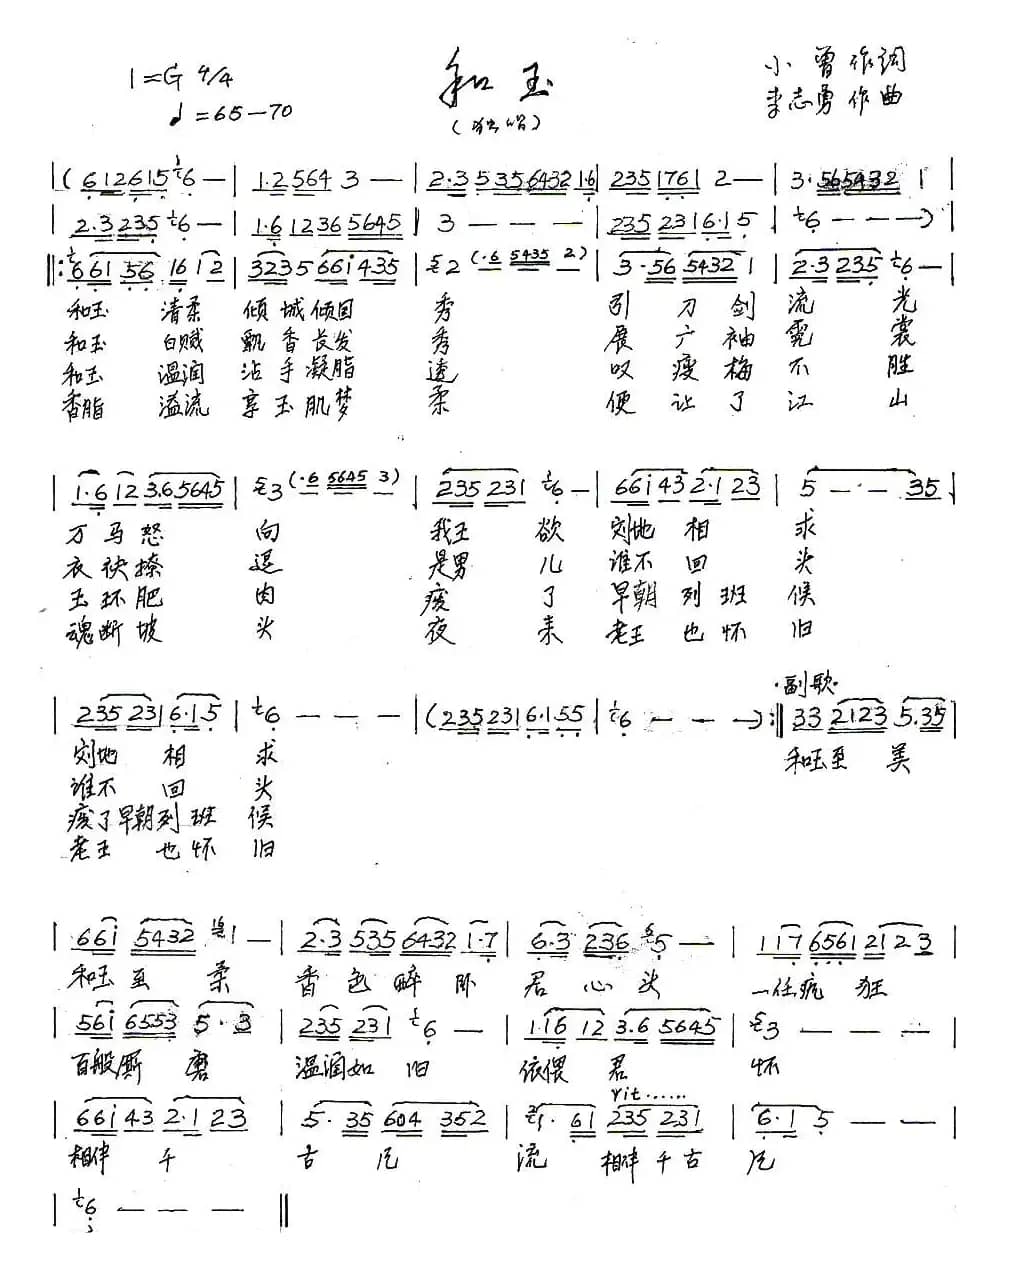 1=G 4/4
♩=65—70
和玉
(独唱)
小曾作词
李志勇作曲
|( 6 12 6 15 6 — | 1·2 564 3 — — | 2·3 535 6432 1·6 | 235 1761 2 — — | 3·56 5432 1 |
| 2·3 235 6 — — | 1·6 1236 5645 | 3 — — — | 235 2316·1 5 | 6 — — —) |
‖: 661 56 16 12 | 3235 661 435 | 2 (·6 5435 2) | 3·56 5432 1 | 2·3 235 6 — |
和玉 清柔 倾城倾国 秀 引刀剑流光
和玉 白贼 飘香长发 秀 展广袖霓裳
和玉 温润 沾手凝脂 透 叹瘦梅不胜
香脂 溢流 享玉肌梦 柔 便让了江山
| 1·6 12 3·65645 | 3 (·6 5645 3) | 235 231 6 — | 661 43 2·1 23 | 5 — — 35 |
万马怒 向 我王 欲 刻地相 求
衣袂撩 逞 是男 儿 谁不 回 头
玉环肥 肉 疲 了 早朝列班 候
魂断坡 头 夜 来 老王也怀 旧
| 235 231 6·1 5 | 6 — — — | (235 231 6·1 55 | 6 — — —) :‖
·副歌·
33 2123 5·35 |
刻地 相 求
和玉至 美
谁不 回 头
疲了早朝列班 候
老王 也怀 旧
| 661 5432 1 — | 2·3 535 6432 1·7 | 6·3 236 5 — | 117 6561 2123 |
和玉至 柔 香色醉卧 君心头 一任疯狂
| 561 6553 5·3 | 235 231 6 — | 1·16 12 3·6 5645 | 3 — — — |
百般厮 磨 温润如 旧 依偎君 怀
rit......
| 661 43 2·1 23 | 5·35 604 352 | 1·61 235 231 | 6·1 5 — — |
相伴 千 古 凡 流 相伴千古 凡
| 6 — — — ‖